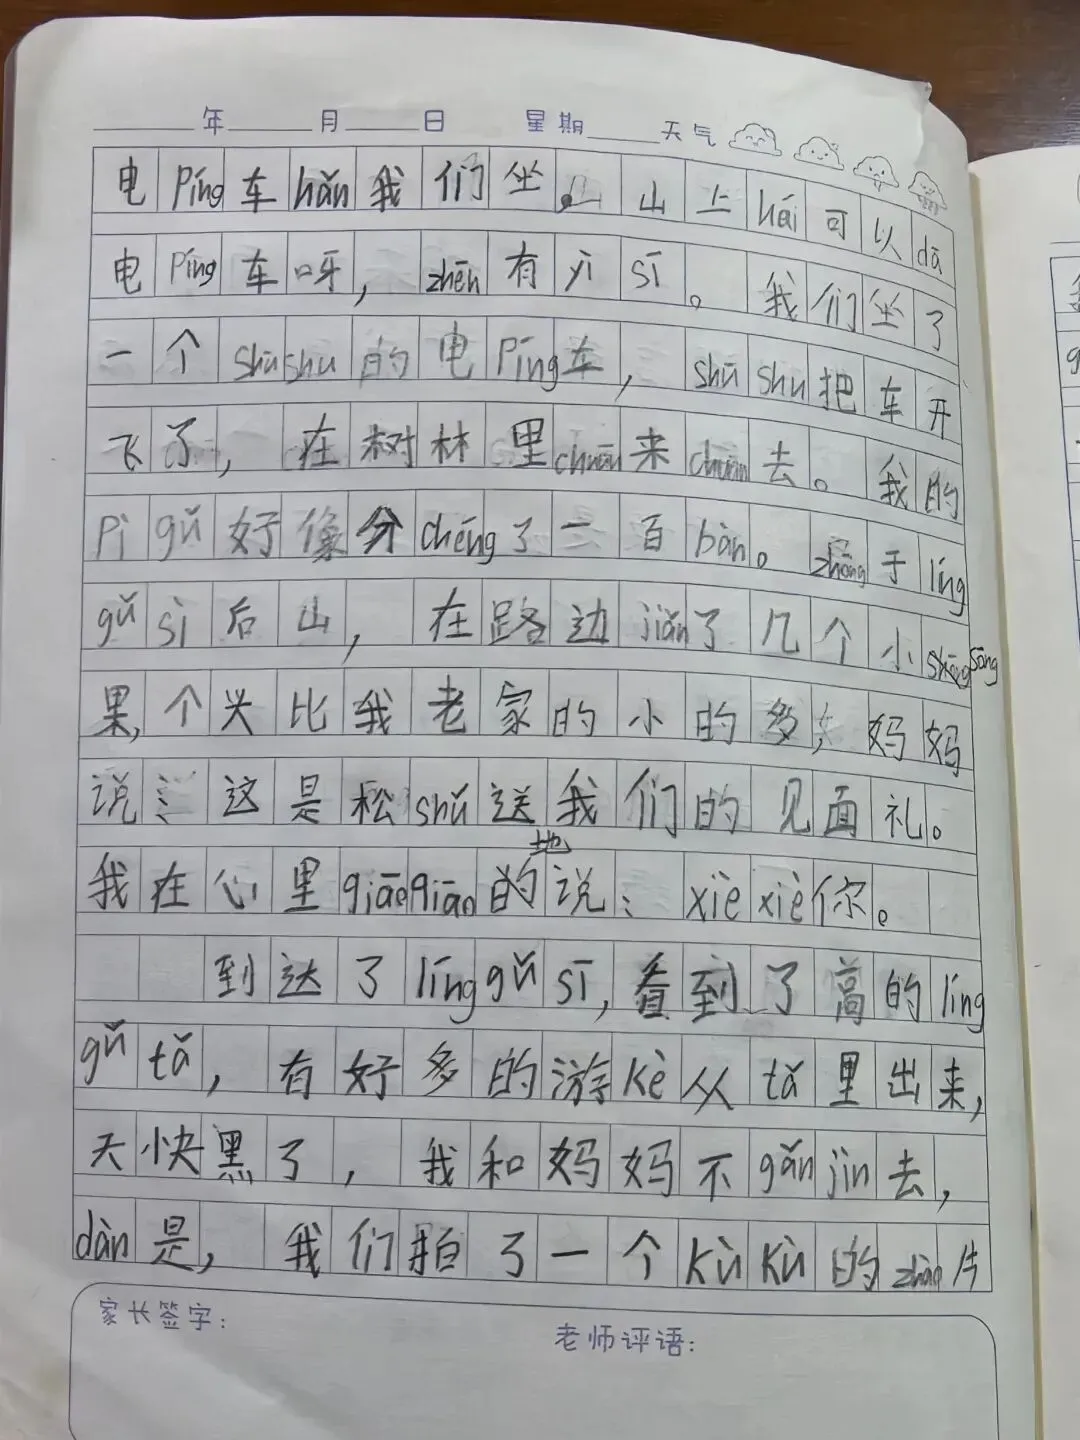 年 月 日 星期 天气
电píng车hǎn我们坐。山上hái可以dā
电píng车呀，zhēn有yì sī。我们坐了
一个shūshu的电píng车，shū shu把车开
飞了，在树林里chuān来chuān去。我的
pì gǔ好像分chéng了一百bàn。zhōng于líng
gǔ sì后山，在路边jiǎn了几个小sōng
果，个头比我老家的小的多，妈妈
说：这是松shǔ送我们的见面礼。
我在心里qiāoqiāo地说：xiè xiè你。
到达了líng gǔ sī，看到了高的líng
gǔ tǎ，有好多的游kè从tǎ里出来，
天快黑了，我和妈妈不gǎn jìn去，
dàn是，我们拍了一个kù kù的zhào片
家长签字：
老师评语：